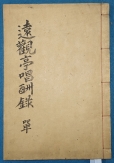 遠觀亭唱酬錄 單